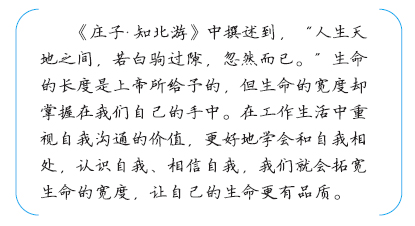 《庄子·知北游》中撰述到，“人生天
地之间，若白驹过隙，忽然而已。”生命
的长度是上帝所给予的，但生命的宽度却
掌握在我们自己的手中。在工作生活中重
视自我沟通的价值，更好地学会和自我相
处，认识自我、相信自我，我们就会拓宽
生命的宽度，让自己的生命更有品质。